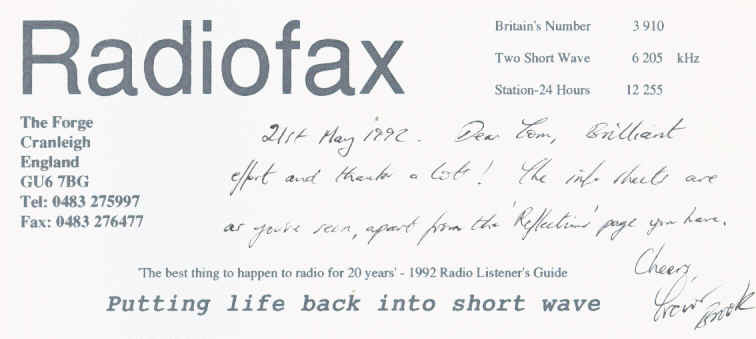 Radiofax
Britain's Number 3 910
Two Short Wave 6 205 kHz
Station-24 Hours 12 255
The Forge
Cranleigh
England
GU6 7BG
Tel: 0483 275997
Fax: 0483 276477
21st May 1992. Dear Tom, Brilliant
effort and thanks a lot! The info sheets are
as you've seen, apart from the 'Reflections' page you have.
'The best thing to happen to radio for 20 years' - 1992 Radio Listener's Guide
Cheers,
Trevor
Brook
Putting life back into short wave